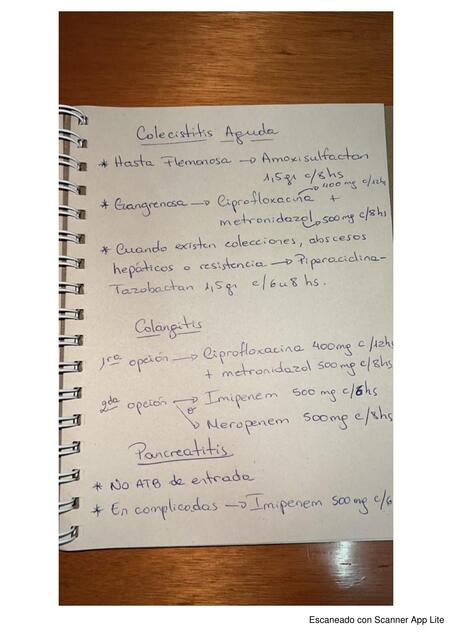 Colecistitis Aguda
* Hasta Flemonosa → Amoxisulfactan
1,5gr c/8hs
* Gangrenosa → Ciprofloxacina → 400 mg c/12hs
+
metronidazol → 500mg c/8hs
* Cuando existen colecciones, abscesos
hepáticos o resistencia → Piperacidina-
Tazobactan 1,5gr c/6 u 8 hs.
Colangitis
1ra opción → Ciprofloxacina 400mg c/12hs
+ metronidazol 500mg c/8hs
2da opción → Imipenem 500 mg c/6hs
o
Meropenem 500mg c/8hs
Pancreatitis
* No ATB de entrada
* En complicadas → Imipenem 500mg c/6
Escaneado con Scanner App Lite